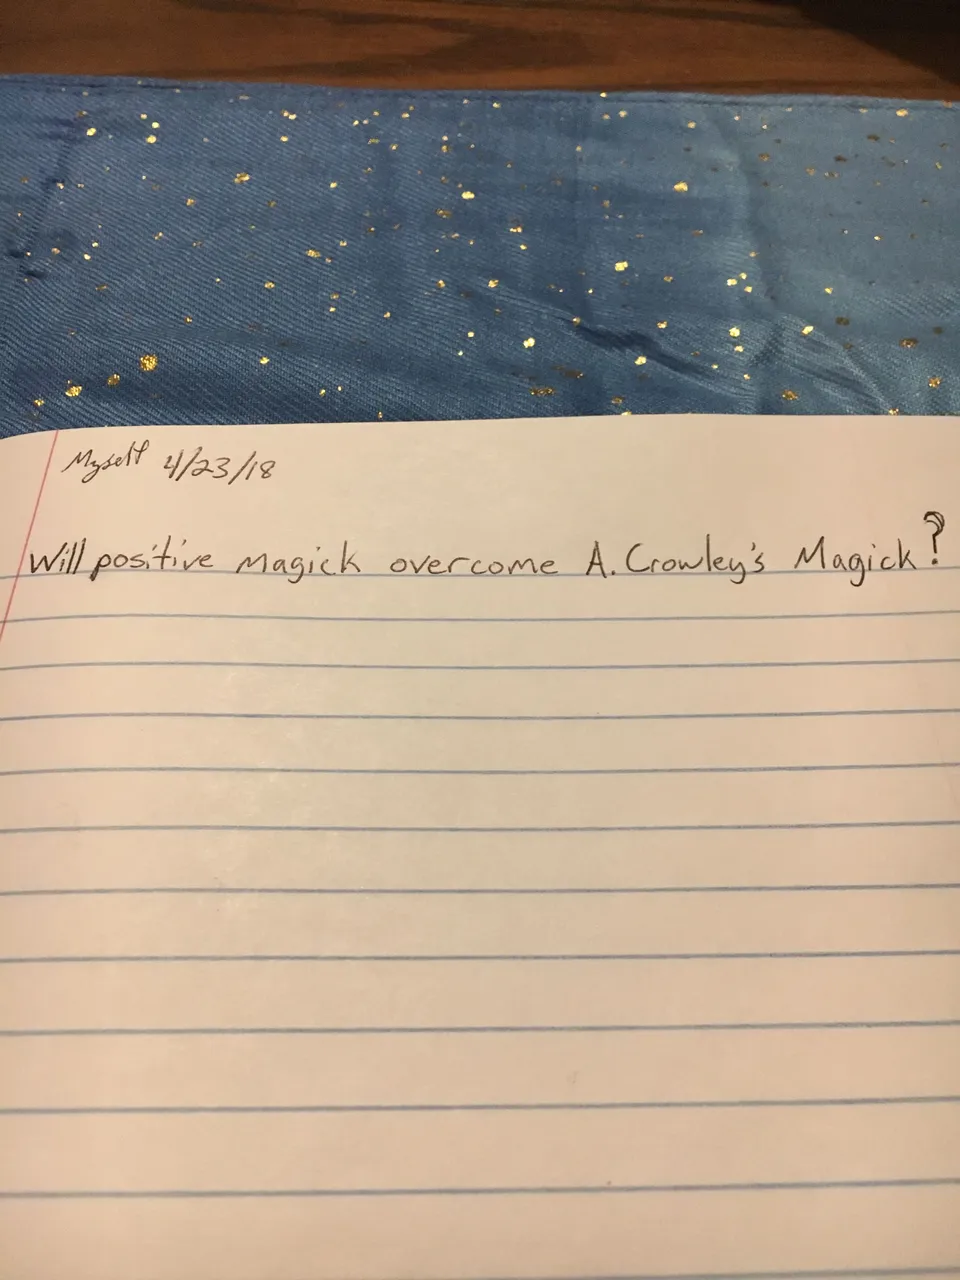 Myself 4/23/18
Will positive magick overcome A. Crowley's Magick?